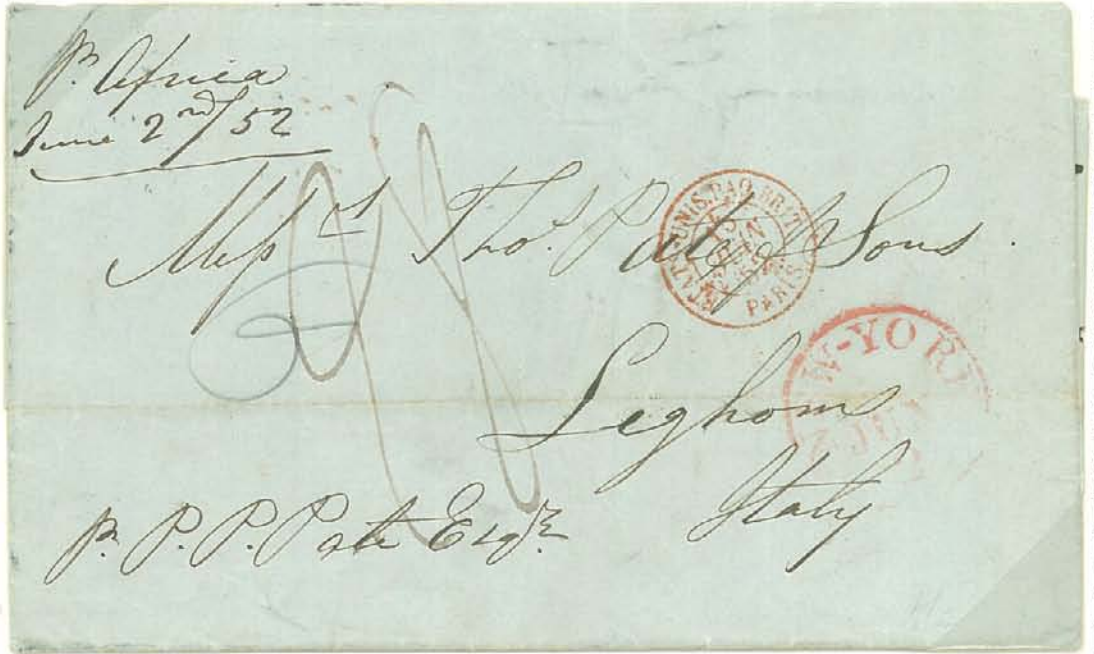 pr Africa
June 2nd/52
Messrs Thos Pate & Sons.
Leghorn
Italy
pr P. P. Pate Esqre
ETATS-UNIS. PAQ. BRIT.
PARIS
W-YOR
JUN